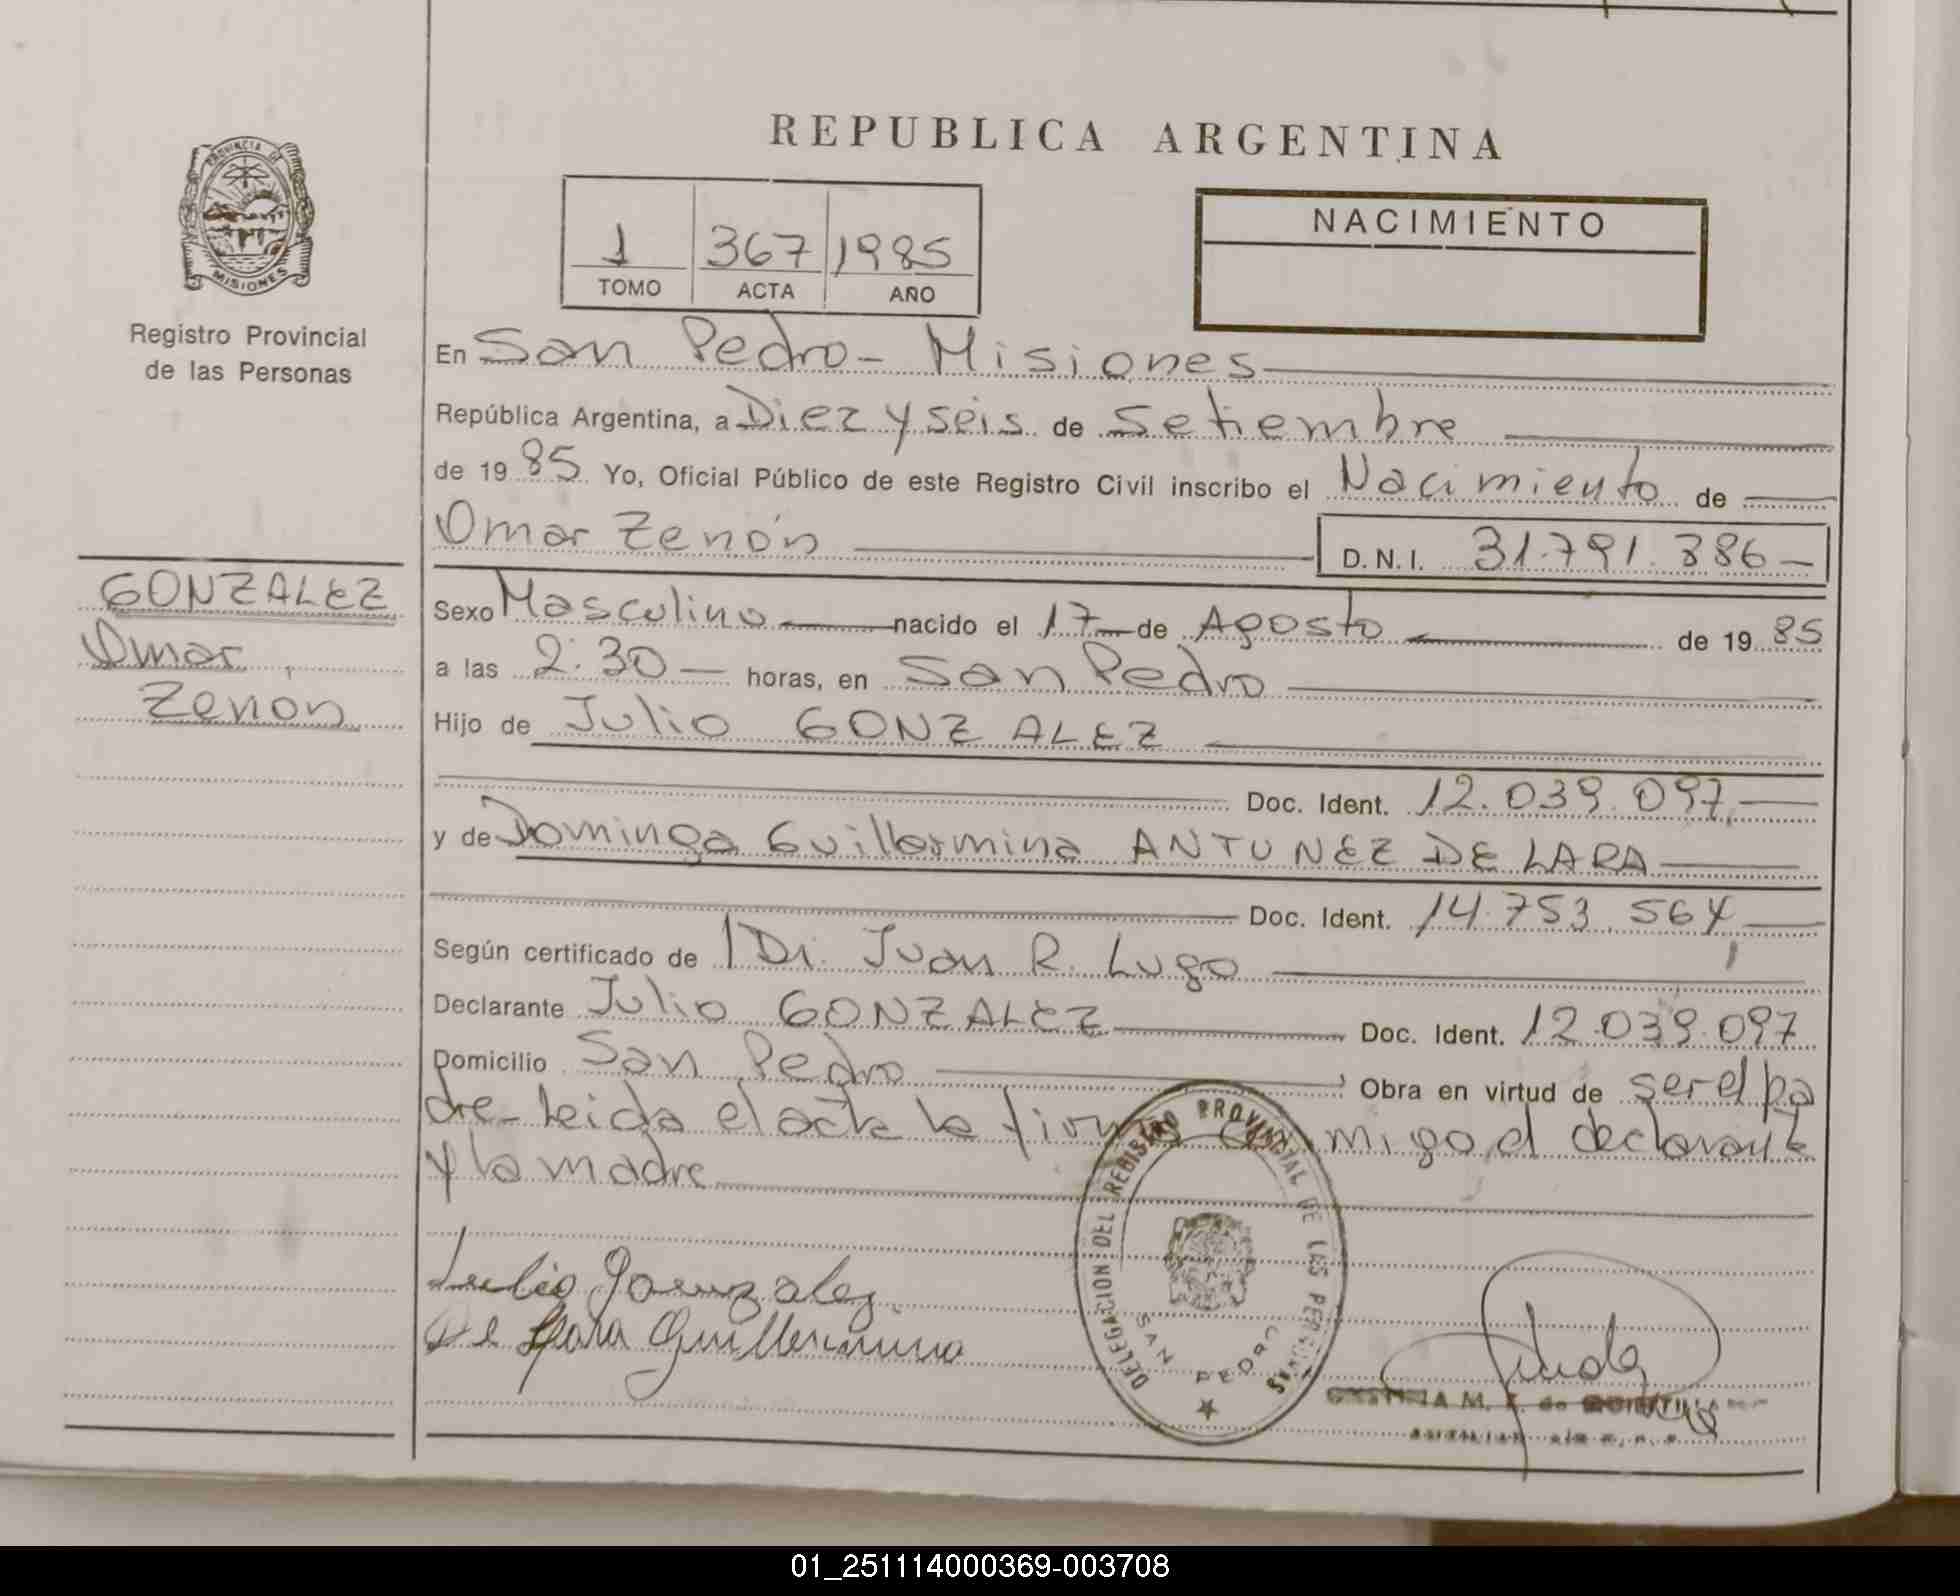 REPUBLICA ARGENTINA
PROVINCIA DE
MISIONES
Registro Provincial
de las Personas
1 367 1985
TOMO ACTA AÑO
NACIMIENTO
En San Pedro - Misiones
República Argentina, a Diez y seis de Setiembre
de 19 85 Yo, Oficial Público de este Registro Civil inscribo el Nacimiento de
Omar Zenón D.N.I. 31.791.386-
GONZALEZ
Omar
Zenon
Sexo Masculino nacido el 17 de Agosto de 19 85
a las 2:30 horas, en San Pedro
Hijo de Julio GONZALEZ
Doc. Ident. 12.039.097
y de Dominga Guillermina ANTUNEZ DE LARA
Doc. Ident. 14.753.564
Según certificado de Dr. Juan R. Lugo
Declarante Julio GONZALEZ Doc. Ident. 12.039.097
Domicilio San Pedro Obra en virtud de ser el pa
dre - Leida el acta la firma conmigo el declarante
y la madre
Julio Gounzalez
De Lara Guillermina
DELEGACION DEL REGISTRO PROVINCIAL DE LAS PERSONAS
SAN PEDRO
01_251114000369-003708